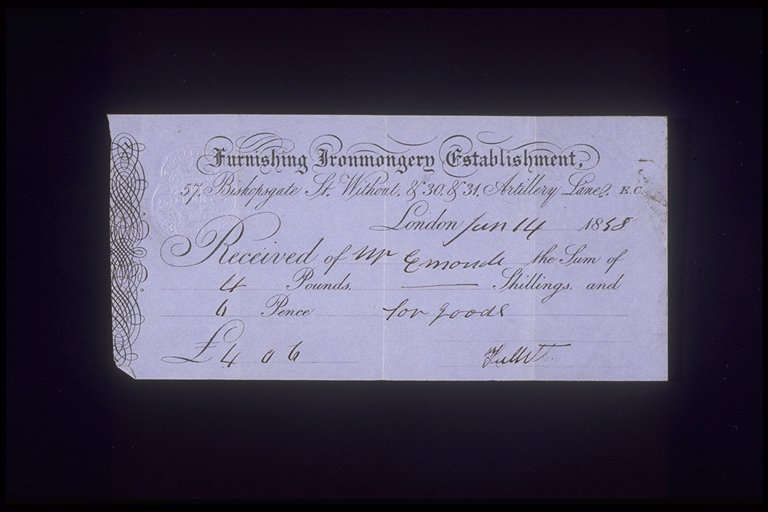 Furnishing Ironmongery Establishment,
57, Bishopsgate St. Without, & 30, & 31, Artillery Lane, E.C.
London Jan 14 1858
Received of Mr Emonds the Sum of
4 Pounds, — Shillings, and
6 Pence for goods
£4 0 6